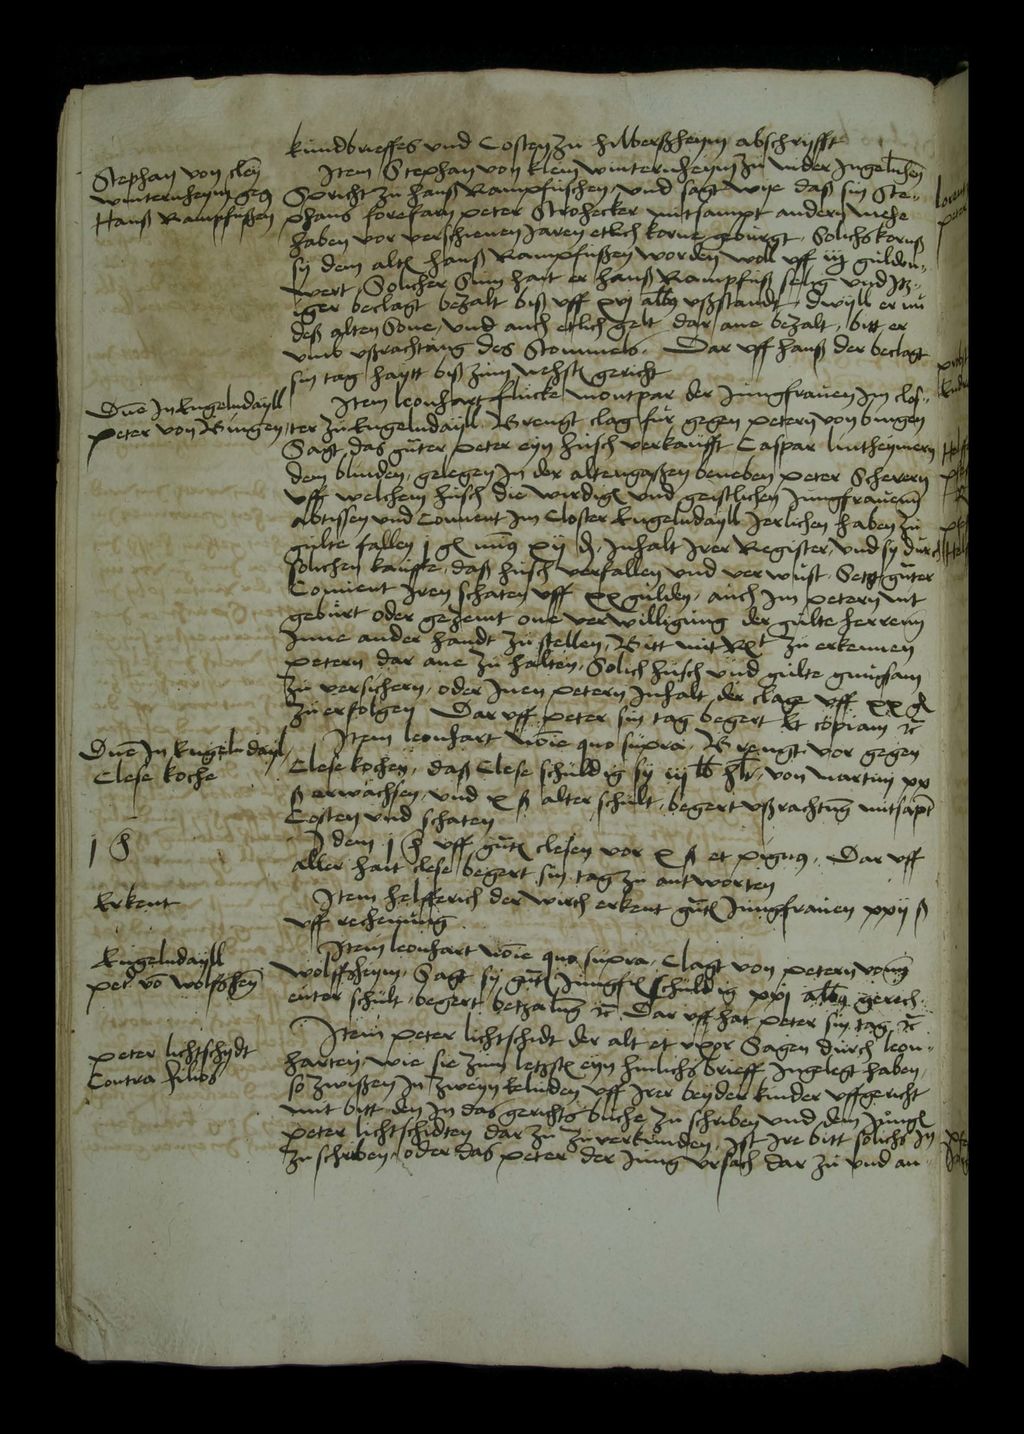 kundbrieffes und Costen zu hilberßheym abschryfft
Stephan von cleyn
winternheym geg
Hanß Rampfußen
Item Stephan von klein winternheym zu nider Ingelnheim
Spricht zu hanß Rampfuschen, und sagt wye daß sin Ste-
phans forefarn peter Strohecker mitsampt andern mehe
haben vor verschienen Jaren etlich korne geburgt, Solichs korns
sy dem alten hanß Rampfußen worden wol uff iij gulden-
wert, Solicher Sum hait er hanß Rampfuß selig und Itz-
iger beclagt bezalt biß uff xvj alb ußstandt, dwyll er nu
deß alten Sone, und auch etlich gelt dar ane bezalt, bitt er
umb ußrachtung des Stommels. Dar uff hanß der beclagt
sin tag haytt biß zum nehsten gericht
Dne In Engelndayll
peter von Bingen
Item leonhart flucke montpar der Jungfrauen Im clos-
ter zu Engelndayll Brengt clag fur gegen petern von bingen
Sagt, das guter peter eyn husch verkaufft Caspar lintheymern
dem blinden, gelegen In der altengaßen beneben peter Scherern
uff welchem husch die wirdigen und geistlichen Jungfrauenn
abtissen und Convent Im Closter Engelndayll Jerlichen haben zu
gulte fallen j g minus xij d, Inhalt Irer Register, und sy durch
solichen kauffe, daß husch verfallen und verwust, Setzt guter
Convent Iren schaten uff xx gulden, auch Im petern nit
geburt oder gezemt one verwilligung der gulte herrenn
Inne ander handt zu stellen, Bitt mit Recht zu erkennen
petern dar ane zu halten, Solich husch und gulte gnugsam
zu versichern, oder Inen petern Inhalt der clage uff xx g
zu erfolgen Dar uff peter sin tag begert et copiam etc
Dne In Engelndayl
Clese koche
Item leonhart noie quo supra, Brengt vor gegen
Clese kochen, daß Clese schuldig sy iij lb hl, von martini xx
ß erwachsen, und x ß alter schult, begert ußrachtung mitsampt
Costen und schaten
j h
J dem j h uff guten clesen vor x ß et pignus, Dar uff
aller hait clese begert sin tag zu antworten
Erkent
Item helfferich der wirth erkent guten Jungfrauen xxij ß
uff rechenung
Engelndayll
pet vo wolfßhem
Item leonhart noie quo supra, Clagt von petern vonn
wolffßheym, Sagt sy guten Jungfrauen schuldig xxj alb gerech-
enter schult, begert betzalung etc Dar uff hat peter sin tag etc
peter lichtschydt
Contra filios
Item peter lichtschidt der alt et uxor Sagen durch leon-
harten, wie sie zum letzsten eyn hinlichs brieff Ingelegt haben,
so zwißen In zweyn eeluden uff Irer beyder kinder uffgericht
mit bitt den In das gerichts buche zu schriben und dem Jungen
peter lichtschidten dar zu zu verkunden, Ist Ire bitt solichs In
zu schriben, oder das peter der Jung ursach dar zu und an-